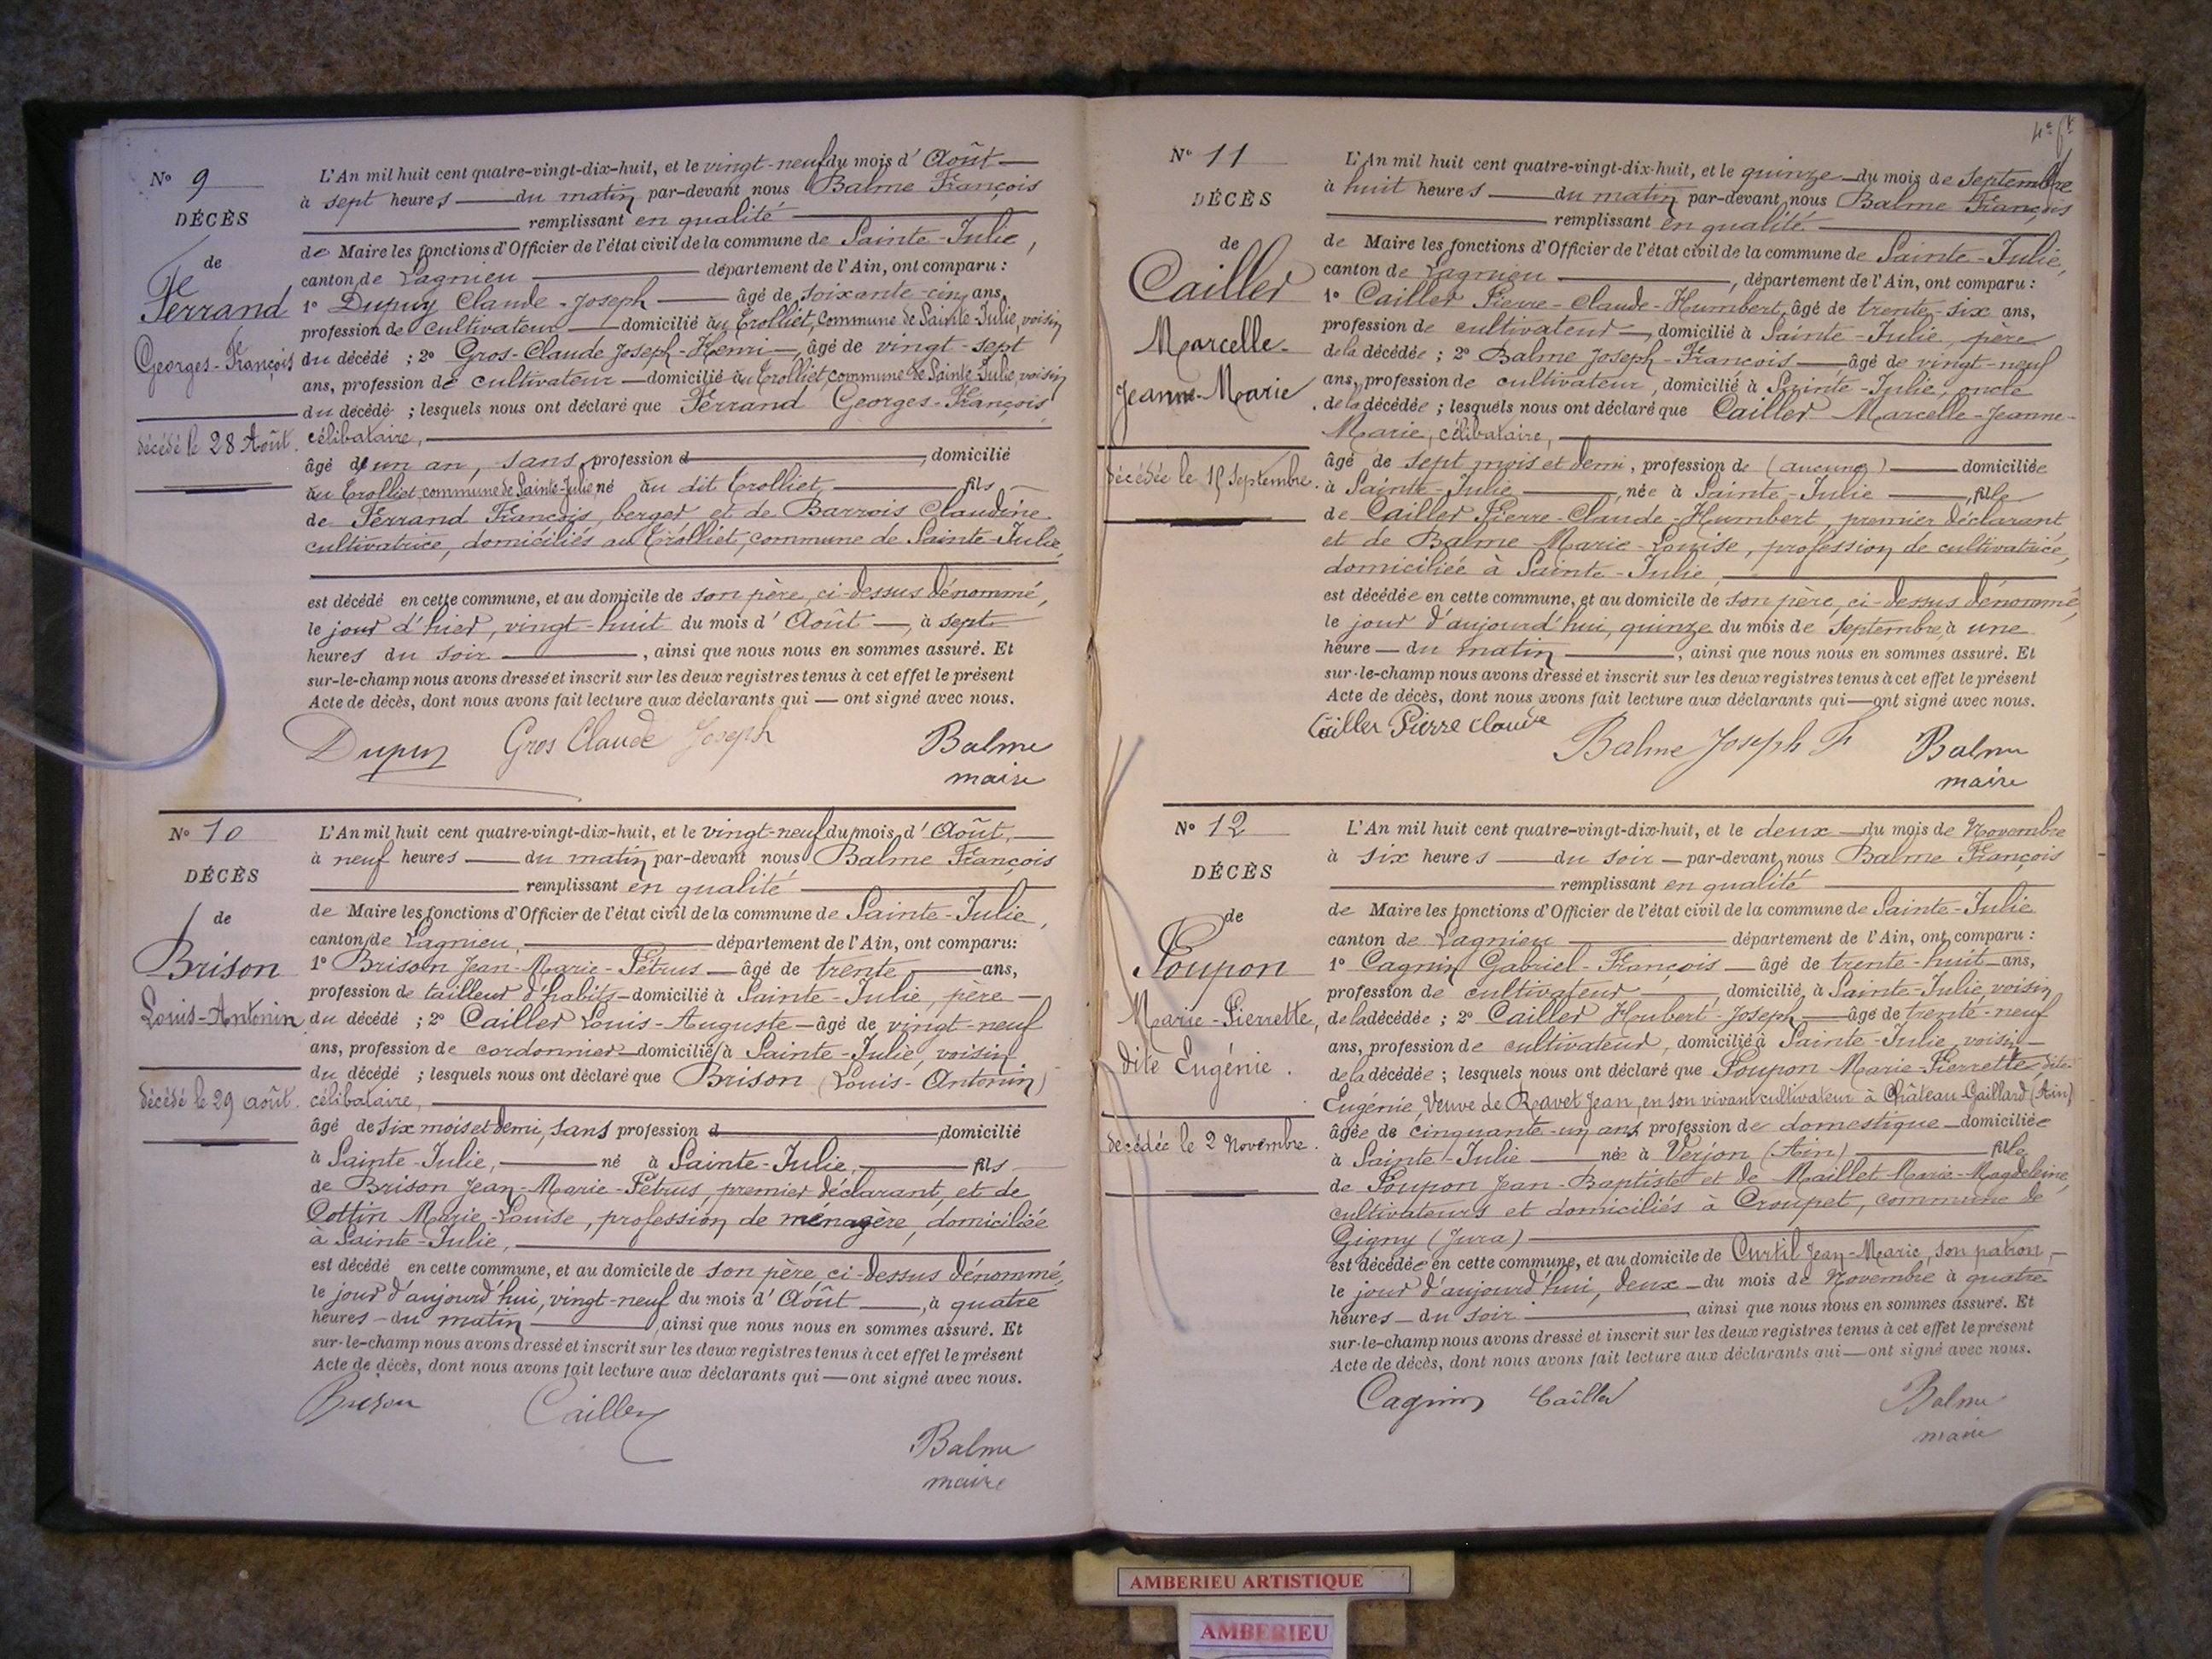 N° 9
DÉCÈS
de
Ferrand
Georges-François
décédé le 28 Août.
L'An mil huit cent quatre-vingt-dix-huit, et le vingt-neuf du mois d' Août
à sept heures du matin par-devant nous Balme François
remplissant en qualité
de Maire les fonctions d'Officier de l'état civil de la commune de Sainte-Julie,
canton de Lagnieu département de l'Ain, ont comparu :
1° Dupuy Claude-Joseph âgé de soixante-cinq ans,
profession de cultivateur domicilié au Trolliet, commune de Sainte-Julie, voisin
du décédé ; 2° Gros-Claude Joseph-Henri, âgé de vingt-sept
ans, profession de cultivateur domicilié au Trolliet, commune de Sainte-Julie, voisin
du décédé ; lesquels nous ont déclaré que Ferrand Georges-François,
célibataire,
âgé d'un an, sans profession d , domicilié
au Trolliet, commune de Sainte-Julie né au dit Trolliet, fils
de Ferrand François, berger et de Barrois Claudine
cultivatrice, domiciliés au Trolliet, commune de Sainte-Julie,
est décédé en cette commune, et au domicile de son père, ci-dessus dénommé,
le jour d'hier, vingt-huit du mois d' Août, à sept
heures du soir, ainsi que nous nous en sommes assuré. Et
sur-le-champ nous avons dressé et inscrit sur les deux registres tenus à cet effet le présent
Acte de décès, dont nous avons fait lecture aux déclarants qui ont signé avec nous.
Dupuy Gros Claude Joseph Balme
maire
N° 10
DÉCÈS
de
Brison
Louis-Antonin
décédé le 29 août.
L'An mil huit cent quatre-vingt-dix-huit, et le vingt-neuf du mois d' Août,
à neuf heures du matin par-devant nous Balme François
remplissant en qualité
de Maire les fonctions d'Officier de l'état civil de la commune de Sainte-Julie,
canton de Lagnieu, département de l'Ain, ont comparu:
1° Brison Jean-Marie-Pétrus âgé de trente ans,
profession de tailleur d'habits domicilié à Sainte-Julie, père
du décédé ; 2° Cailler Louis-Auguste âgé de vingt-neuf
ans, profession de cordonnier domicilié à Sainte-Julie, voisin
du décédé ; lesquels nous ont déclaré que Brison (Louis-Antonin)
célibataire,
âgé de six mois et demi, sans profession d , domicilié
à Sainte-Julie, né à Sainte-Julie, fils
de Brison Jean-Marie-Pétrus, premier déclarant, et de
Cottin Marie-Louise, profession de ménagère, domiciliée
à Sainte-Julie,
est décédé en cette commune, et au domicile de son père, ci-dessus dénommé,
le jour d'aujourd'hui, vingt-neuf du mois d' Août, à quatre
heures du matin, ainsi que nous nous en sommes assuré. Et
sur-le-champ nous avons dressé et inscrit sur les deux registres tenus à cet effet le présent
Acte de décès, dont nous avons fait lecture aux déclarants qui ont signé avec nous.
Brison Cailler
Balme
maire
N° 11
DÉCÈS
de
Cailler
Marcelle-
Jeanne-Marie
décédée le 15 Septembre.
L'An mil huit cent quatre-vingt-dix-huit, et le quinze du mois de Septembre
à huit heures du matin par-devant nous Balme François
remplissant en qualité
de Maire les fonctions d'Officier de l'état civil de la commune de Sainte-Julie,
canton de Lagnieu, département de l'Ain, ont comparu :
1° Cailler Pierre-Claude-Humbert, âgé de trente-six ans,
profession de cultivateur, domicilié à Sainte-Julie, père
de la décédée ; 2° Balme Joseph-François, âgé de vingt-neuf
ans, profession de cultivateur, domicilié à Sainte-Julie, oncle
de la décédée ; lesquels nous ont déclaré que Cailler Marcelle-Jeanne-
Marie, célibataire,
âgé de sept mois et demi, profession de (aucune) domiciliée
à Sainte-Julie, née à Sainte-Julie, fille
de Cailler Pierre-Claude-Humbert, premier déclarant
et de Balme Marie-Louise, profession de cultivatrice,
domiciliée à Sainte-Julie,
est décédée en cette commune, et au domicile de son père, ci-dessus dénommé,
le jour d'aujourd'hui, quinze du mois de Septembre, à une
heure du matin, ainsi que nous nous en sommes assuré. Et
sur-le-champ nous avons dressé et inscrit sur les deux registres tenus à cet effet le présent
Acte de décès, dont nous avons fait lecture aux déclarants qui ont signé avec nous.
Cailler Pierre Claude
Balme Joseph F Balme
maire
N° 12
DÉCÈS
de
Poupon
Marie-Pierrette,
dite Eugénie.
décédée le 2 Novembre.
L'An mil huit cent quatre-vingt-dix-huit, et le deux du mois de Novembre
à six heures du soir par-devant nous Balme François
remplissant en qualité
de Maire les fonctions d'Officier de l'état civil de la commune de Sainte-Julie
canton de Lagnieu département de l'Ain, ont comparu :
1° Cagnin Gabriel-François âgé de trente-huit ans,
profession de cultivateur domicilié à Sainte-Julie, voisin
de la décédée ; 2° Cailler Hubert-Joseph âgé de trente-neuf
ans, profession de cultivateur, domicilié à Sainte-Julie, voisin
de la décédée ; lesquels nous ont déclaré que Poupon Marie-Pierrette, dite
Eugénie, Veuve de Ravet Jean, en son vivant cultivateur à Château-Gaillard (Ain)
âgée de cinquante-un ans, profession de domestique domiciliée
à Sainte-Julie née à Verjon (Ain) fille
de Poupon Jean-Baptiste et de Maillet Marie-Magdeleine,
cultivateurs et domiciliés à Croupet, commune de
Gigny (Jura)
est décédée en cette commune, et au domicile de Curtil Jean-Marie, son patron,
le jour d'aujourd'hui, deux du mois de Novembre à quatre
heures du soir ainsi que nous nous en sommes assuré. Et
sur-le-champ nous avons dressé et inscrit sur les deux registres tenus à cet effet le présent
Acte de décès, dont nous avons fait lecture aux déclarants qui ont signé avec nous.
Cagnin Cailler Balme
maire
AMBERIEU ARTISTIQUE
AMBERIEU